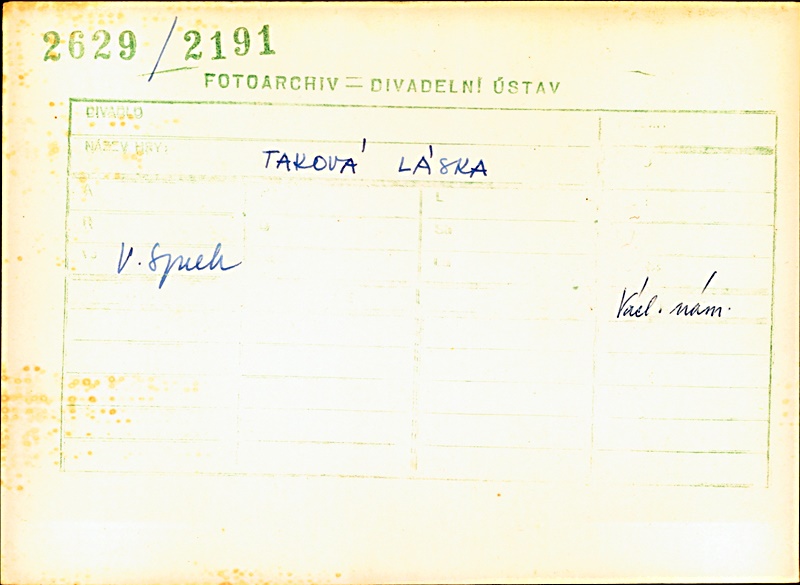 2629/2191
FOTOARCHIV = DIVADELNÍ ÚSTAV
DIVADLO
NÁZEV HRY:
TAKOVÁ LÁSKA
A
L
R
V. Špidla
Václ. nám.